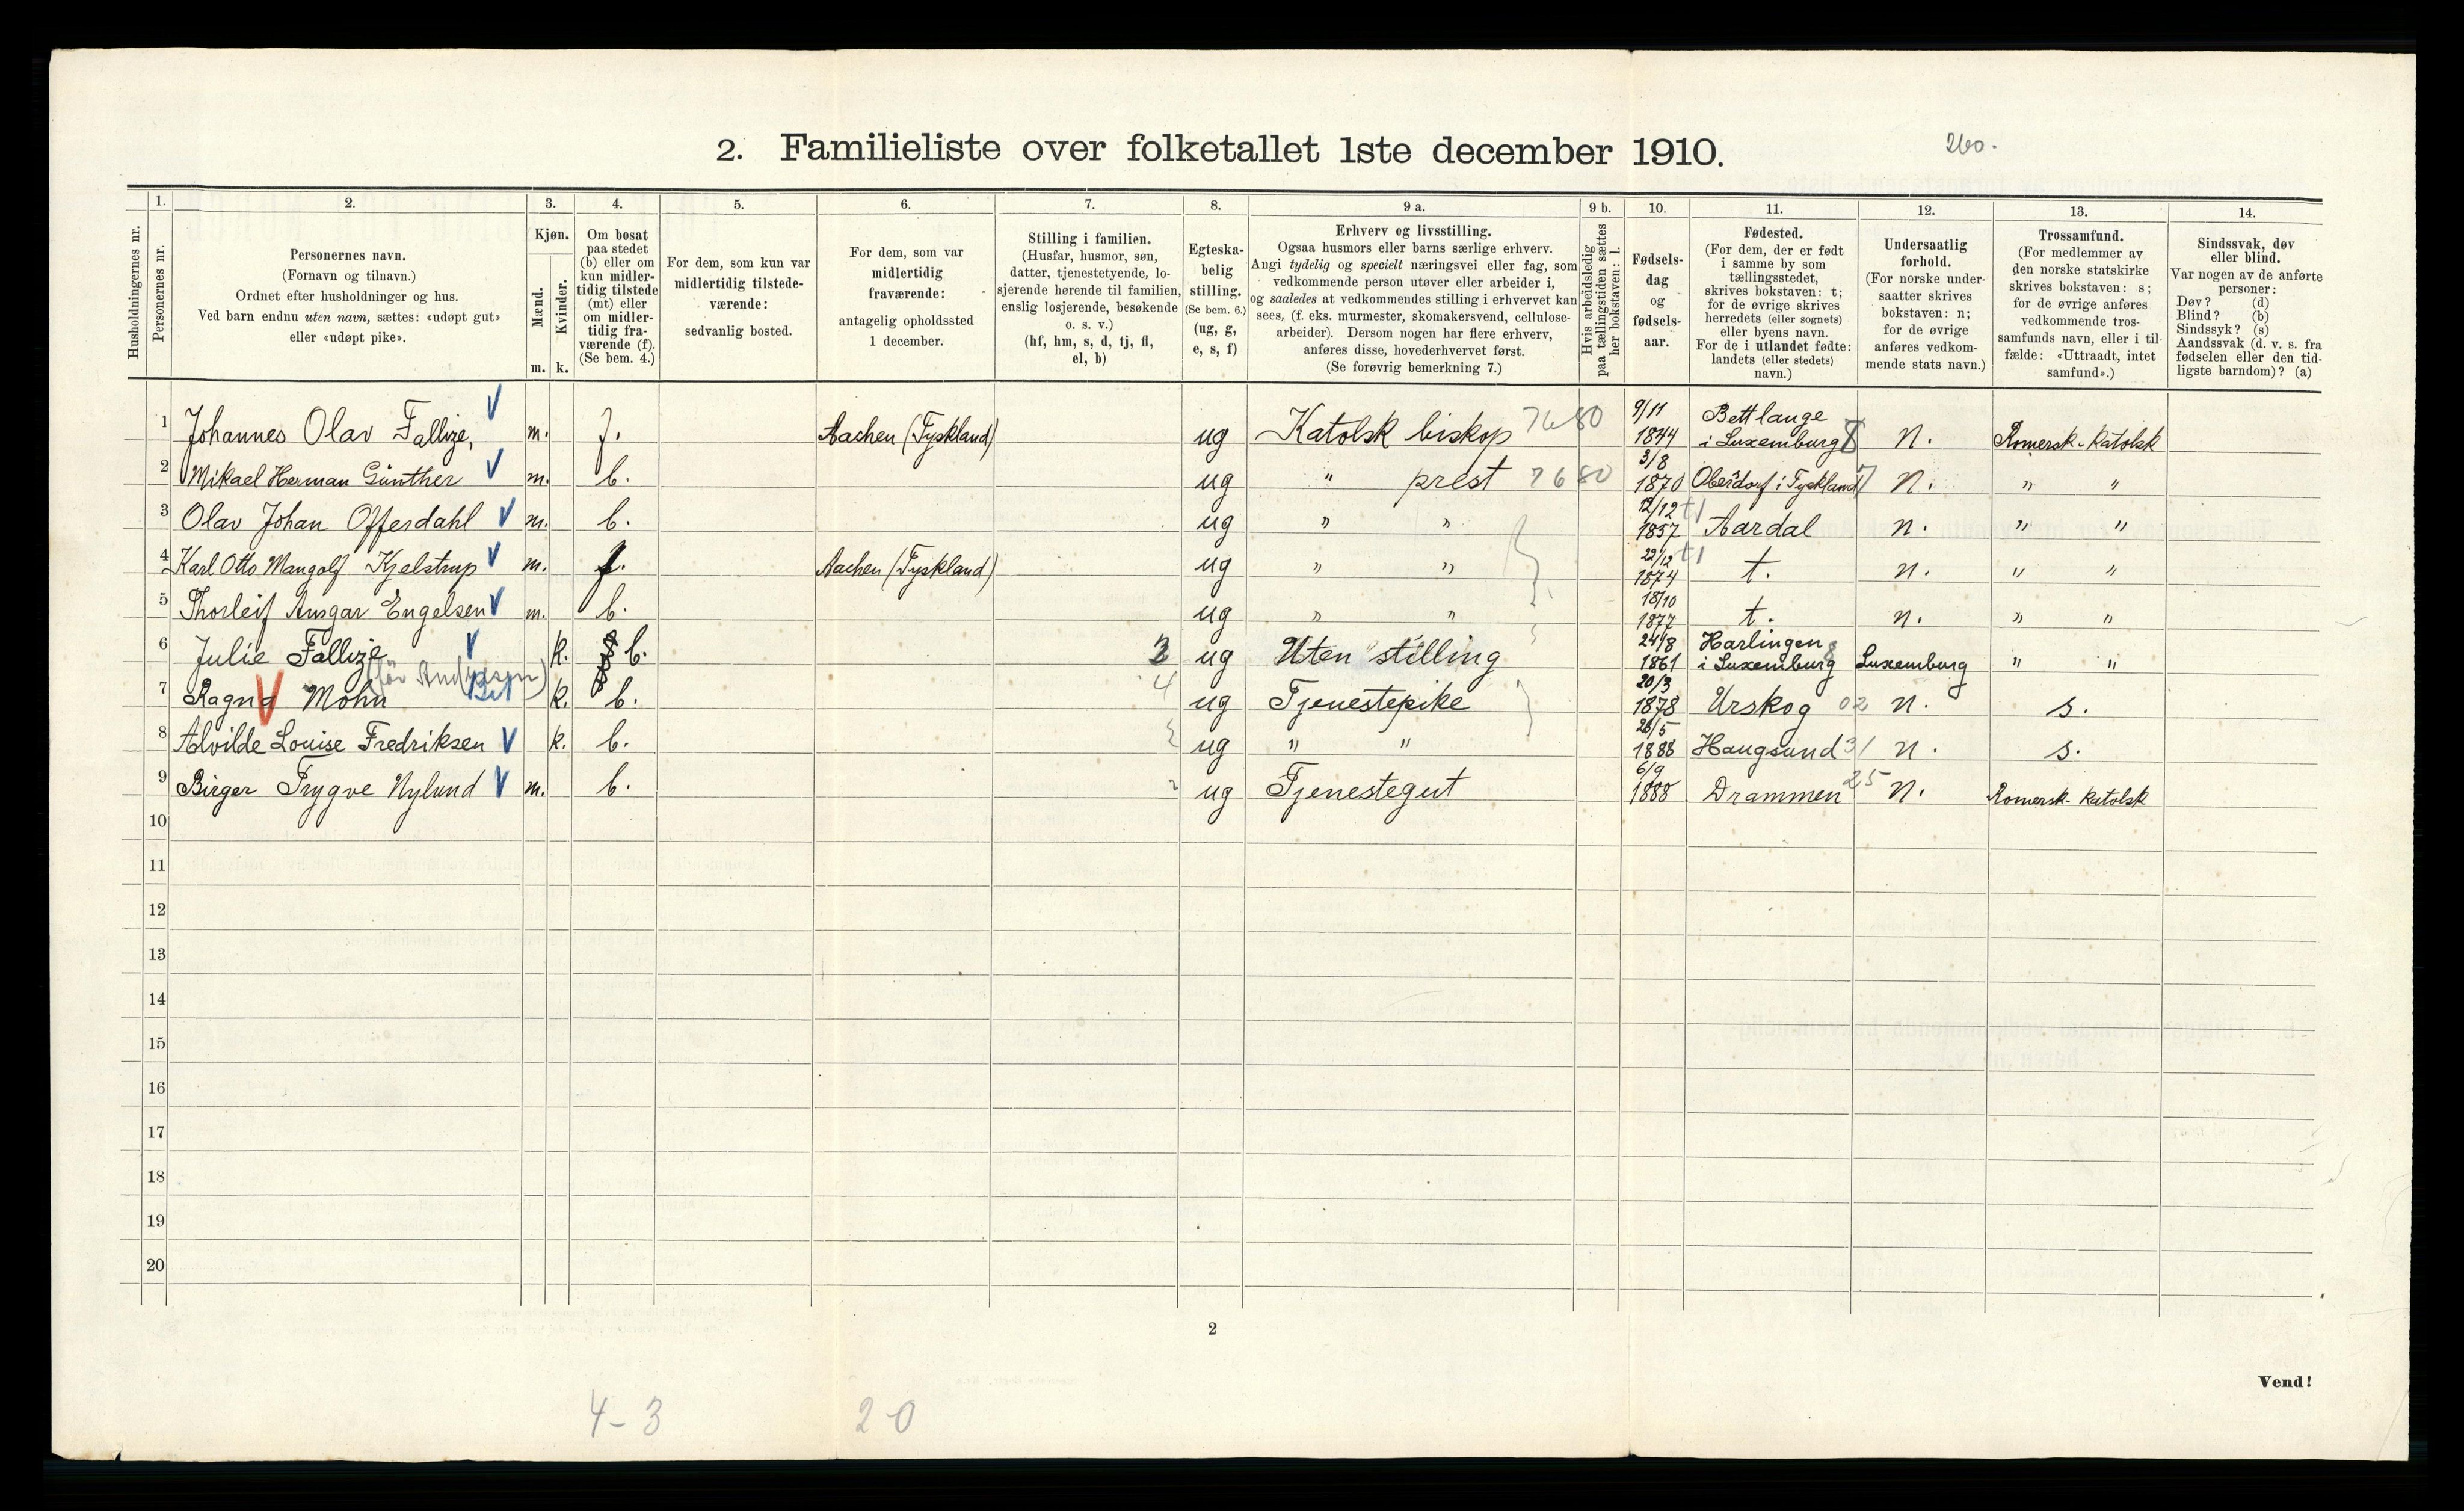 2. Familieliste over folketallet 1ste december 1910.
260.
Husholdningernes nr.
1. Personernes nr.
2. Personernes navn. (Fornavn og tilnavn.) Ordnet efter husholdninger og hus. Ved barn endnu uten navn, sættes: «udøpt gut» eller «udøpt pike».
3. Kjøn. Mænd. m. Kvinder. k.
4. Om bosat paa stedet (b) eller om kun midlertidig tilstede (mt) eller om midlertidig fraværende (f). (Se bem. 4.)
5. For dem, som kun var midlertidig tilstedeværende: sedvanlig bosted.
6. For dem, som var midlertidig fraværende: antagelig opholdssted 1 december.
7. Stilling i familien. (Husfar, husmor, søn, datter, tjenestetyende, losjerende hørende til familien, enslig losjerende, besøkende o. s. v.) (hf, hm, s, d, tj, fl, el, b)
8. Egteskabelig stilling. (Se bem. 6.) (ug, g, e, s, f)
9 a. Erhverv og livsstilling. Ogsaa husmors eller barns særlige erhverv. Angi tydelig og specielt næringsvei eller fag, som vedkommende person utøver eller arbeider i, og saaledes at vedkommendes stilling i erhvervet kan sees, (f. eks. murmester, skomakersvend, cellulosearbeider). Dersom nogen har flere erhverv, anføres disse, hovederhvervet først. (Se forøvrig bemerkning 7.)
9 b. Hvis arbeidsledig paa tællingstiden sættes her bokstaven: l.
10. Fødselsdag og fødselsaar.
11. Fødested. (For dem, der er født i samme by som tællingsstedet, skrives bokstaven: t; for de øvrige skrives herredets (eller sognets) eller byens navn. For de i utlandet fødte: landets (eller stedets) navn.)
12. Undersaatlig forhold. (For norske undersaatter skrives bokstaven: n; for de øvrige anføres vedkommende stats navn.)
13. Trossamfund. (For medlemmer av den norske statskirke skrives bokstaven: s; for de øvrige anføres vedkommende trossamfunds navn, eller i tilfælde: «Uttraadt, intet samfund».)
14. Sindssvak, døv eller blind. Var nogen av de anførte personer: Døv? (d) Blind? (b) Sindssyk? (s) Aandssvak (d. v. s. fra fødselen eller den tidligste barndom)? (a)
1 Johannes Olav Fallize, V m. f. Aachen (Tyskland) ug Katolsk biskop 7680 9/11 1844 Bettlange i Luxemburg 8 n. Romersk-Katolsk
2 Mikael Herman Günther V m. b. ug " prest 7680 3/8 1870 Oberdorf i Tyskland 7 n. " "
3 Olav Johan Offerdahl V m. b. ug " " 12/12 1857 Aardal n. " "
4 Karl Otto Mangolf Kjelstrup V m. f. Aachen (Tyskland) ug " " 22/12 1874 t. n. " "
5 Thorleif Ansgar Engelsen V m. b. ug " " 18/10 1877 t. n. " "
6 Julie Fallize V k. b. 3 ug Uten stilling 24/8 1861 Harlingen i Luxemburg 8 Luxemburg " "
7 Ragna Mohn V k. b. 4 ug Tjenestepike 20/3 1878 Urskog 02 n. s.
8 Alvilde Louise Fredriksen V k. b. ug " " 26/5 1888 Haugsund 31 n. s.
9 Birger Trygve Nylund V m. b. ug Tjenestegut 6/9 1888 Drammen 25 n. Romersk-Katolsk
10
11
12
13
14
15
16
17
18
19
20
2
Vend!
4-3 2-0